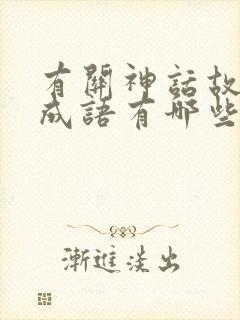 有關神話故
成語有哪些
漸進淡出